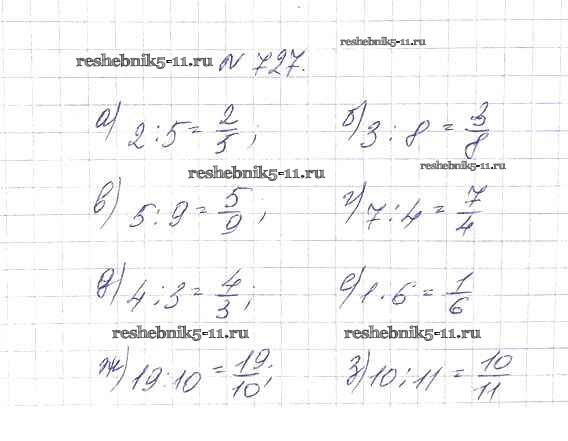 reshebnik5-11.ru
reshebnik5-11.ru № 727.
а) 2 : 5 = 2/5 ; б) 3 : 8 = 3/8
reshebnik5-11.ru
reshebnik5-11.ru
в) 5 : 9 = 5/9 ; г) 7 : 4 = 7/4
д) 4 : 3 = 4/3 ; е) 1 · 6 = 1/6
reshebnik5-11.ru reshebnik5-11.ru
ж) 19 : 10 = 19/10 ; з) 10 : 11 = 10/11